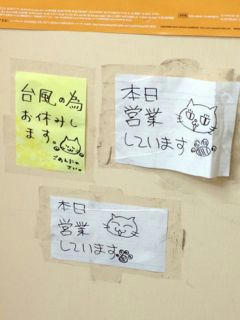 台風の為
お休みし
ます。
ごめんにゃ
さい。
本日
営業
しています
本日
営業
しています